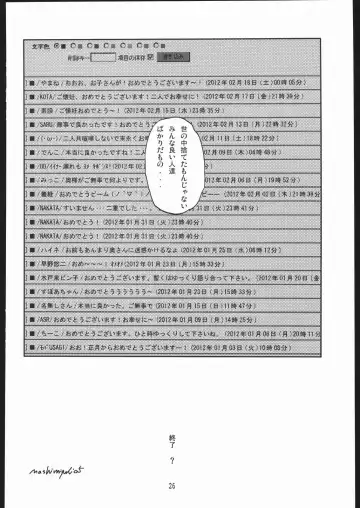 文字色
削除キー
項目の保存
■/やまね/おおお、お子さんが!おめでとうございます~!(2012年02月18日(土)00時05分)
■/KOTA/ご懐妊、おめでとうございます!二人でお幸せに!(2012年02月17日(金)21時39分)
■/ご懐妊おめでとう~!(2012年02月15日(水)23時35分)
■/SARU/無事で良かったです!おめでとう(2012年02月13日(月)22時32分)
■/(・ω・)/二人共喧嘩しないで末永く(2012年02月11日(土)18時22分)
■/でんこ/本当に良かったですね!二人(2012年02月09日(木)04時48分)
■/みっこ/奥様がご無事で何よりです。(2012年02月06日(月)19時52分)
(2012年02月02日(木)21時39分)
■/NAKATA/すいません、二重でした(火)23時41分)
■/NAKATA/おめでとう!(2012年01月31日(火)23時40分)
■/NAKATA/おめでとう!(2012年01月31日(火)23時40分)
■/ハイネ/お前もあんまり奥さんに迷惑かけるなよ(2012年01月25日(水)06時12分)
(2012年01月23日(月)15時33分)
■/水戸泉ピン子/おめでとうございます。暫くはゆっくり語り合って下さい。(2012年01月20日(金)
■/すぽあちゃん/おめでとうううううう~(2012年01月23日(月)15時33分)
■/名無しさん/本当に良かった、ご無事で(2012年01月15日(日)11時47分)
■/ASR/おめでとうございます!お幸せに~(2012年01月09日(月)14時25分)
■/ちーこ/おめでとうございます。ひと時ゆっくりして下さいね。(2012年01月06日(月)20時11分)
USAGI/おお!正月からおめでとうございます~!(2012年01月03日(火)10時08分)
世の中捨てたもんじゃない
みんな良い人達
ばかりだもの・・・
終了?
26